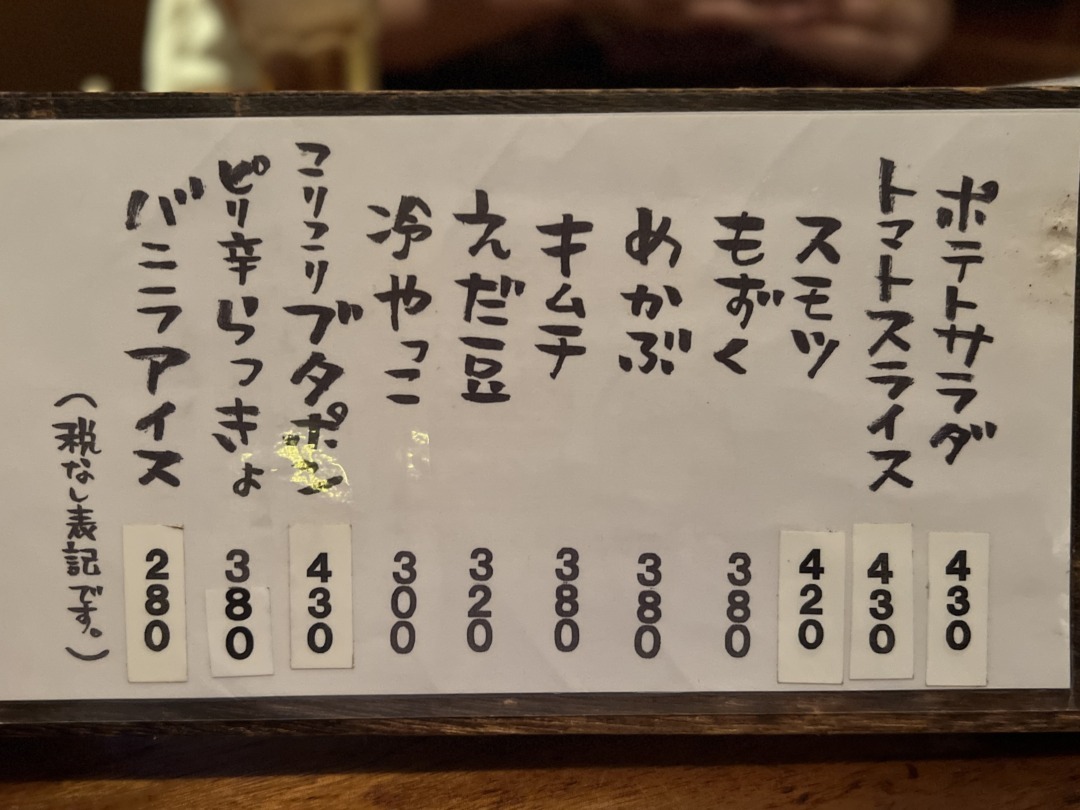 ポテトサラダ 430
トマトスライス 430
スモツ 420
もずく 380
めかぶ 380
キムチ 380
えだ豆 320
冷やっこ 300
こりこりブタポン 430
ピリ辛らっきょ 380
バニラアイス 280
(税なし表記です。)